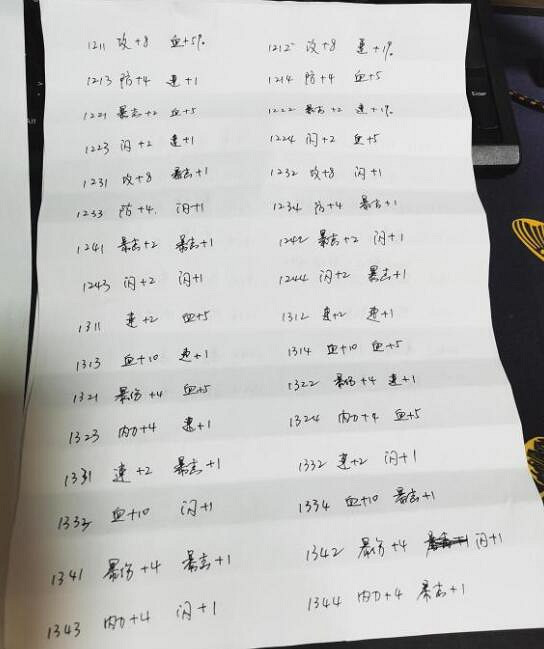 1211 攻+8 血+5% 1212 攻+8 速+1%
1213 防+4 速+1 1214 防+4 血+5
1221 暴击+2 血+5 1222 暴击+2 速+1%
1223 闪+2 速+1 1224 闪+2 血+5
1231 攻+8 暴击+1 1232 攻+8 闪+1
1233 防+4 闪+1 1234 防+4 暴击+1
1241 暴击+2 暴击+1 1242 暴击+2 闪+1
1243 闪+2 闪+1 1244 闪+2 暴击+1
1311 速+2 血+5 1312 速+2 速+1
1313 血+10 速+1 1314 血+10 血+5
1321 暴伤+4 血+5 1322 暴伤+4 速+1
1323 内力+4 速+1 1324 内力+4 血+5
1331 速+2 暴击+1 1332 速+2 闪+1
1333 血+10 闪+1 1334 血+10 暴击+1
1341 暴伤+4 暴击+1 1342 暴伤+4 闪+1
1343 内力+4 闪+1 1344 内力+4 暴击+1